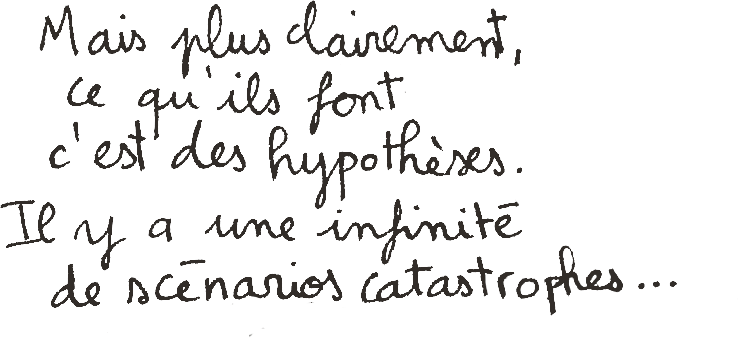 Mais plus clairement,
ce qu'ils font
c'est des hypothèses.
Il y a une infinité
de scénarios catastrophes...